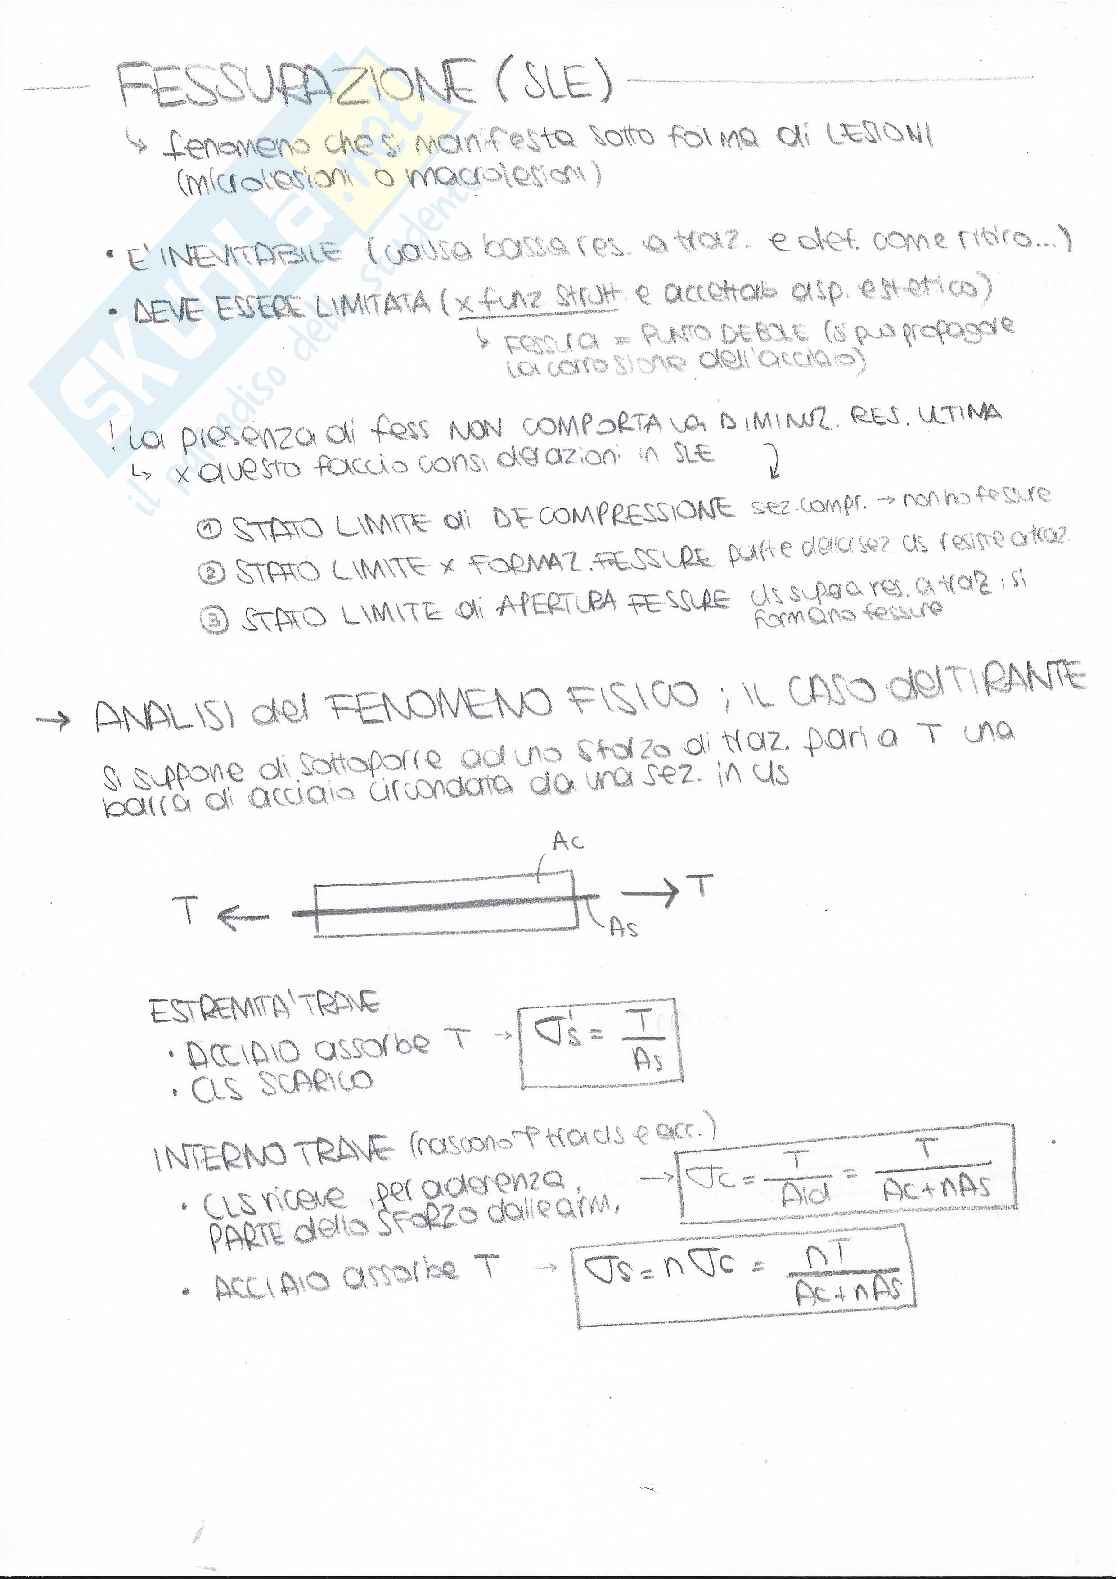 FESSURAZIONE (SLE)
↳ fenomeno che si manifesta sotto forma di LESIONI
(microlesioni o macrolesioni)
• E' INEVITABILE (causa bassa res. a traz. e def. come ritiro...)
• DEVE ESSERE LIMITATA (x funz strutt. e accettab asp. estetico)
↳ FESSURA = PUNTO DEBOLE (si può propagare
la corrosione dell'acciaio)
! La presenza di fess NON COMPORTA la DIMINUZ. RES. ULTIMA
↳ x questo faccio considerazioni in SLE
① STATO LIMITE di DECOMPRESSIONE sez. compr. → non ho fessure
② STATO LIMITE x FORMAZ. FESSURE parte della sez cls resiste a traz.
③ STATO LIMITE di APERTURA FESSURE cls supera res. a traz ; si
formano fessure
→ ANALISI del FENOMENO FISICO ; IL CASO del TIRANTE
Si suppone di sottoporre ad uno sforzo di traz. pari a T una
barra di acciaio circondata da una sez. in cls
Ac
T ← → T
As
ESTREMITA' TRAVE
• ACCIAIO assorbe T → σ's = T / As
• CLS SCARICO
INTERNO TRAVE (nascono τ tra cls e acc.)
• CLS riceve, per aderenza, → σc = T / Aid = T / Ac + nAs
PARTE dello SFORZO dalle arm,
• ACCIAIO assorbe T → σs = nσc = nT / Ac + nAs
SKUOLA.net
il paradiso dello studente